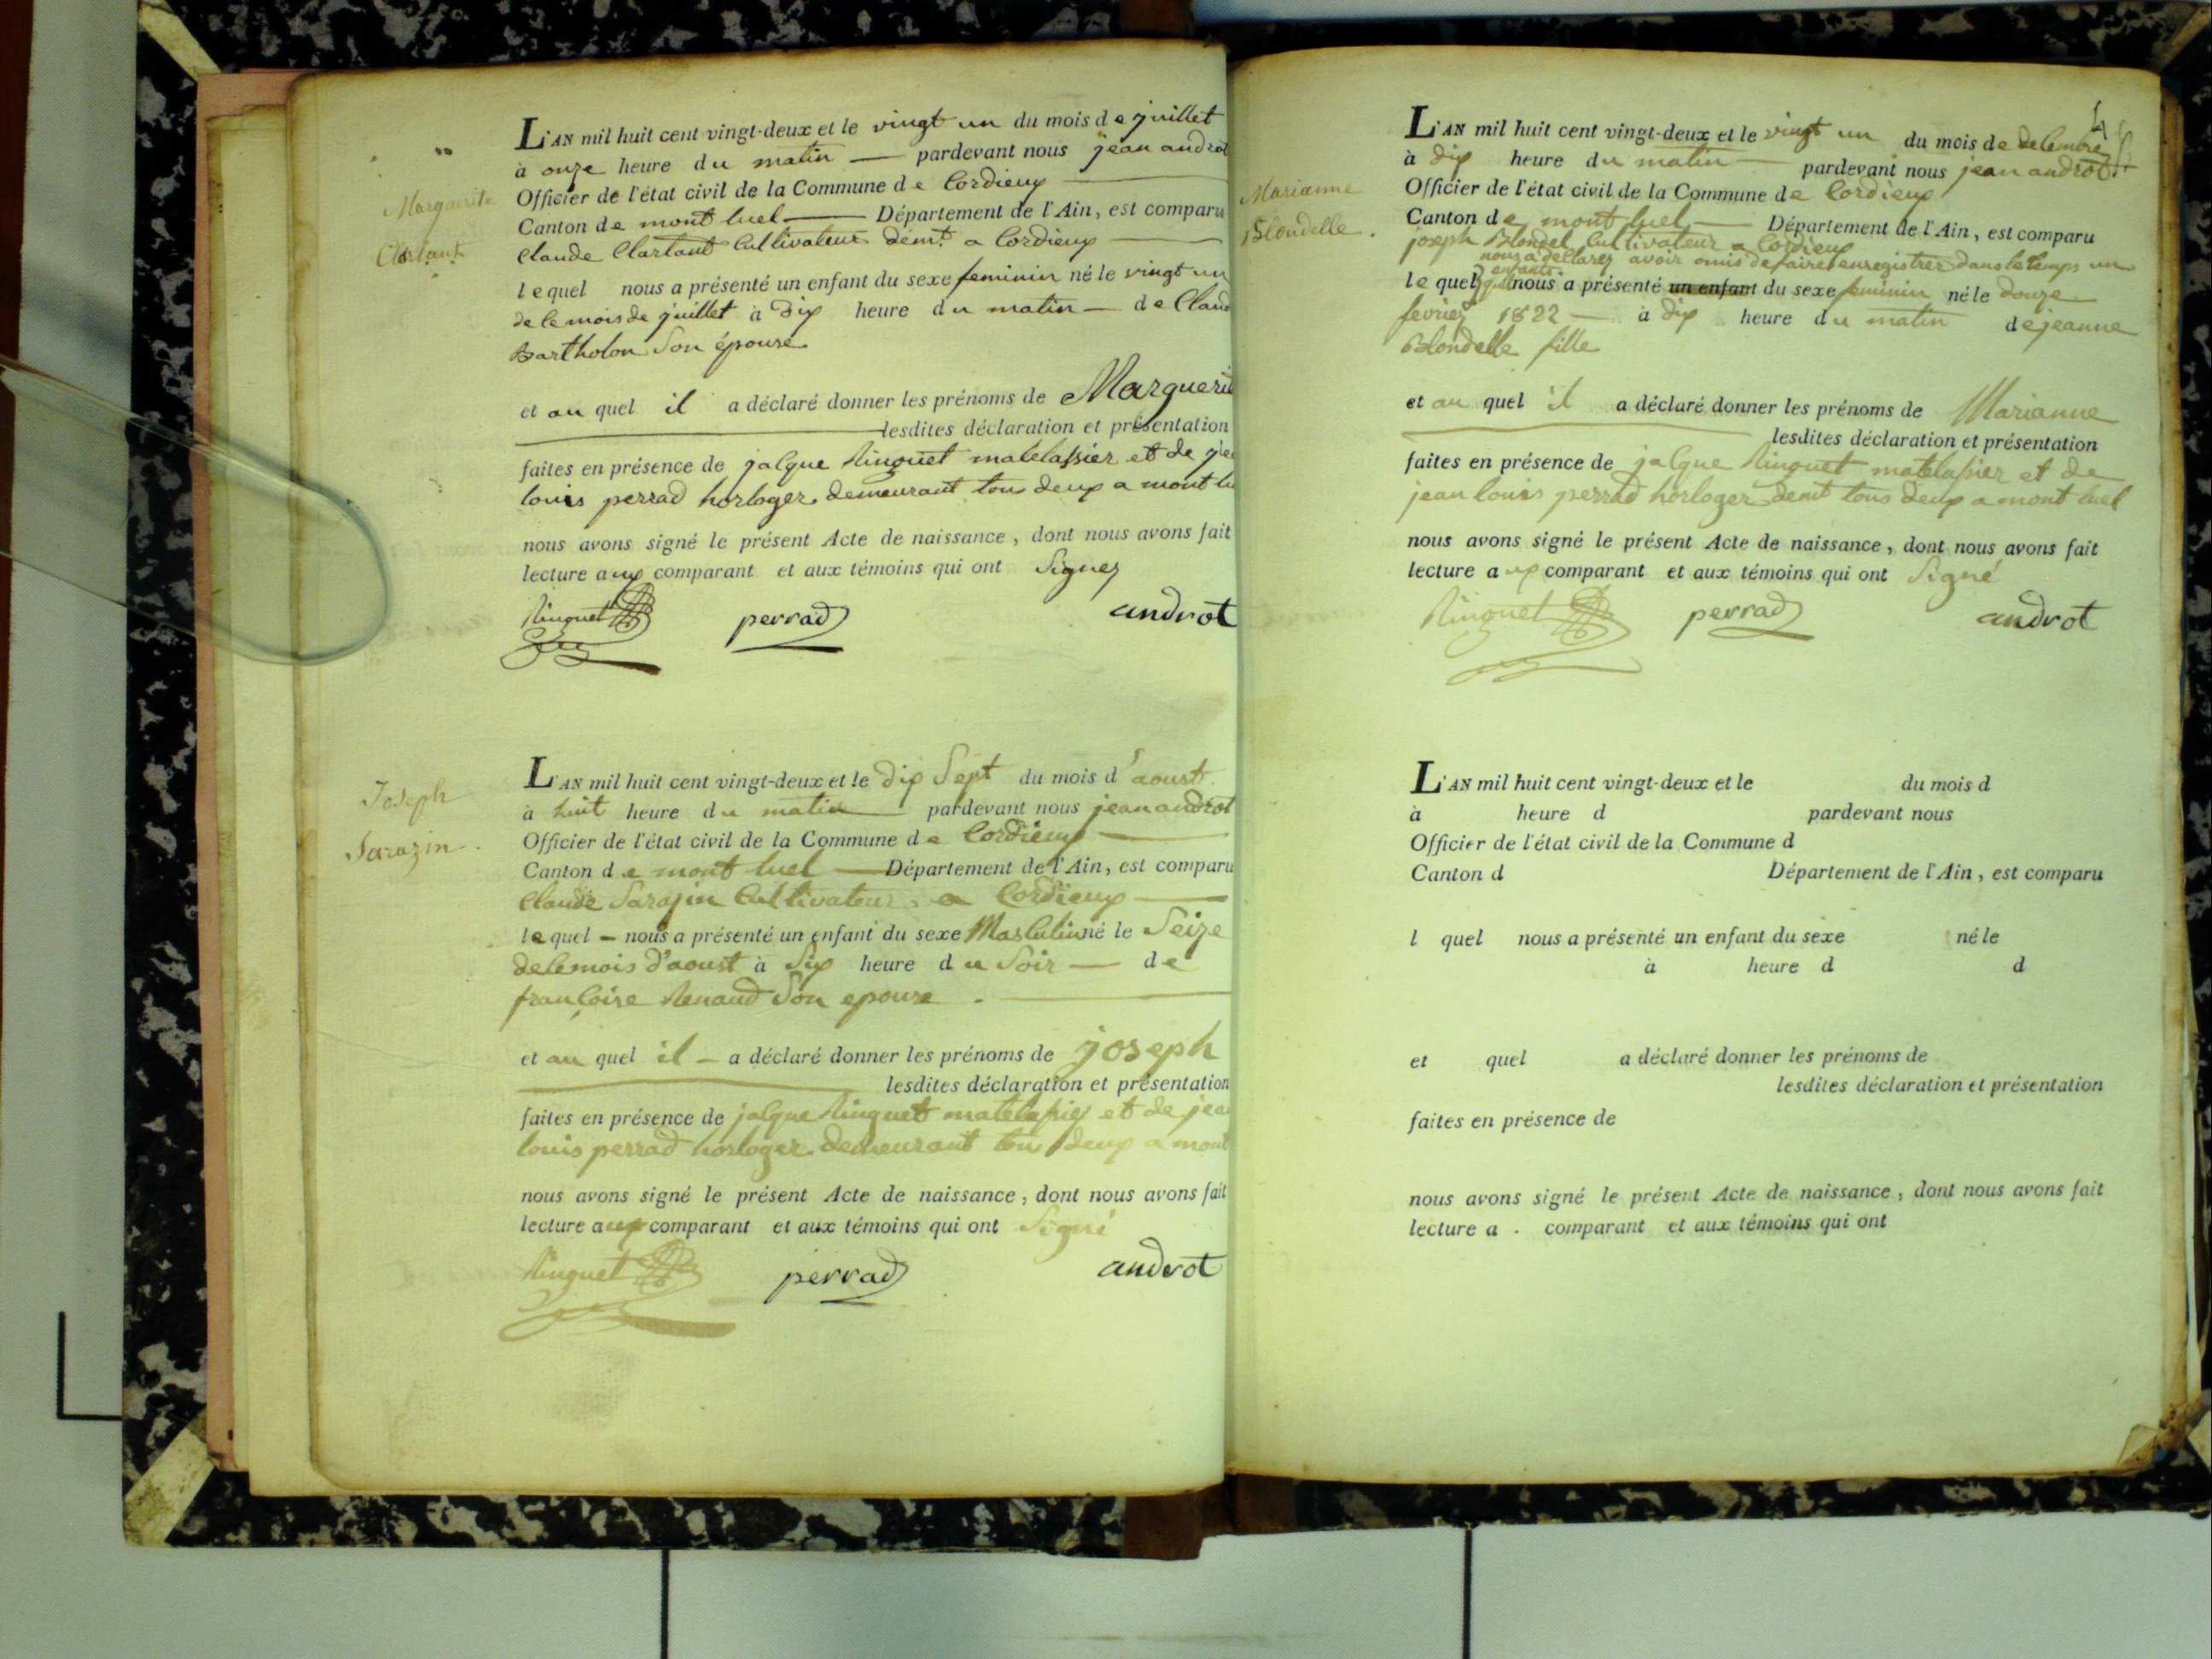 Marguerite
Clartant
L'AN mil huit cent vingt-deux et le vingt un du mois de juillet
à onze heure du matin — pardevant nous jean androt
Officier de l'état civil de la Commune de Cordieux
Canton de mont luel — Département de l'Ain, est comparu
Claude Clartant Cultivateur demt. a Cordieux
lequel nous a présenté un enfant du sexe feminin né le vingt un
de le mois de juillet à dix heure du matin — de Claud
Bartholon Son épouse
et au quel il a déclaré donner les prénoms de Marguerit
lesdites déclaration et présentation
faites en présence de jacque Ringuet matelassier et de
louis perrad horloger demeurant tous deux a mont lu
nous avons signé le présent Acte de naissance, dont nous avons fait
lecture aux comparant et aux témoins qui ont Signez
Ringuet perrad androt
Joseph
Sarazin.
L'AN mil huit cent vingt-deux et le dix Sept du mois d'aoust
à huit heure du matin pardevant nous jean androt
Officier de l'état civil de la Commune de Cordieux
Canton de mont luel — Département de l'Ain, est comparu
Claude Sarazin Cultivateur a Cordieux
lequel – nous a présenté un enfant du sexe Masculin né le Seize
de le mois d'aoust à Six heure du Soir — de
françoise Renaud Son epouse.
et au quel il – a déclaré donner les prénoms de joseph
lesdites déclaration et présentation
faites en présence de jacque Ringuet matelassier et de jean
louis perrad horloger demeurant tous deux a mont
nous avons signé le présent Acte de naissance, dont nous avons fait
lecture aux comparant et aux témoins qui ont Signé
Ringuet perrad androt
Marianne
Blondelle.
L'AN mil huit cent vingt-deux et le vingt un du mois de decembre
à dix heure du matin pardevant nous jean androt
Officier de l'état civil de la Commune de Cordieux
Canton de mont luel — Département de l'Ain, est comparu
joseph Blondel Cultivateur a Cordieux
nous a declarez avoir omis de faire enregistrer dans le temps un
enfants
le quel qu'il nous a présenté un enfant du sexe feminin né le douze
fevrier 1822 — à dix heure du matin de jeanne
Blondelle fille
et au quel il a déclaré donner les prénoms de Marianne
lesdites déclaration et présentation
faites en présence de jacque Ringuet matelassier et de
jean louis perrad horloger demt tous deux a mont luel
nous avons signé le présent Acte de naissance, dont nous avons fait
lecture aux comparant et aux témoins qui ont Signé
Ringuet perrad androt
L'AN mil huit cent vingt-deux et le du mois d
à heure d pardevant nous
Officier de l'état civil de la Commune d
Canton d Département de l'Ain, est comparu
l quel nous a présenté un enfant du sexe né le
à heure d d
et quel a déclaré donner les prénoms de
lesdites déclaration et présentation
faites en présence de
nous avons signé le présent Acte de naissance, dont nous avons fait
lecture a comparant et aux témoins qui ont